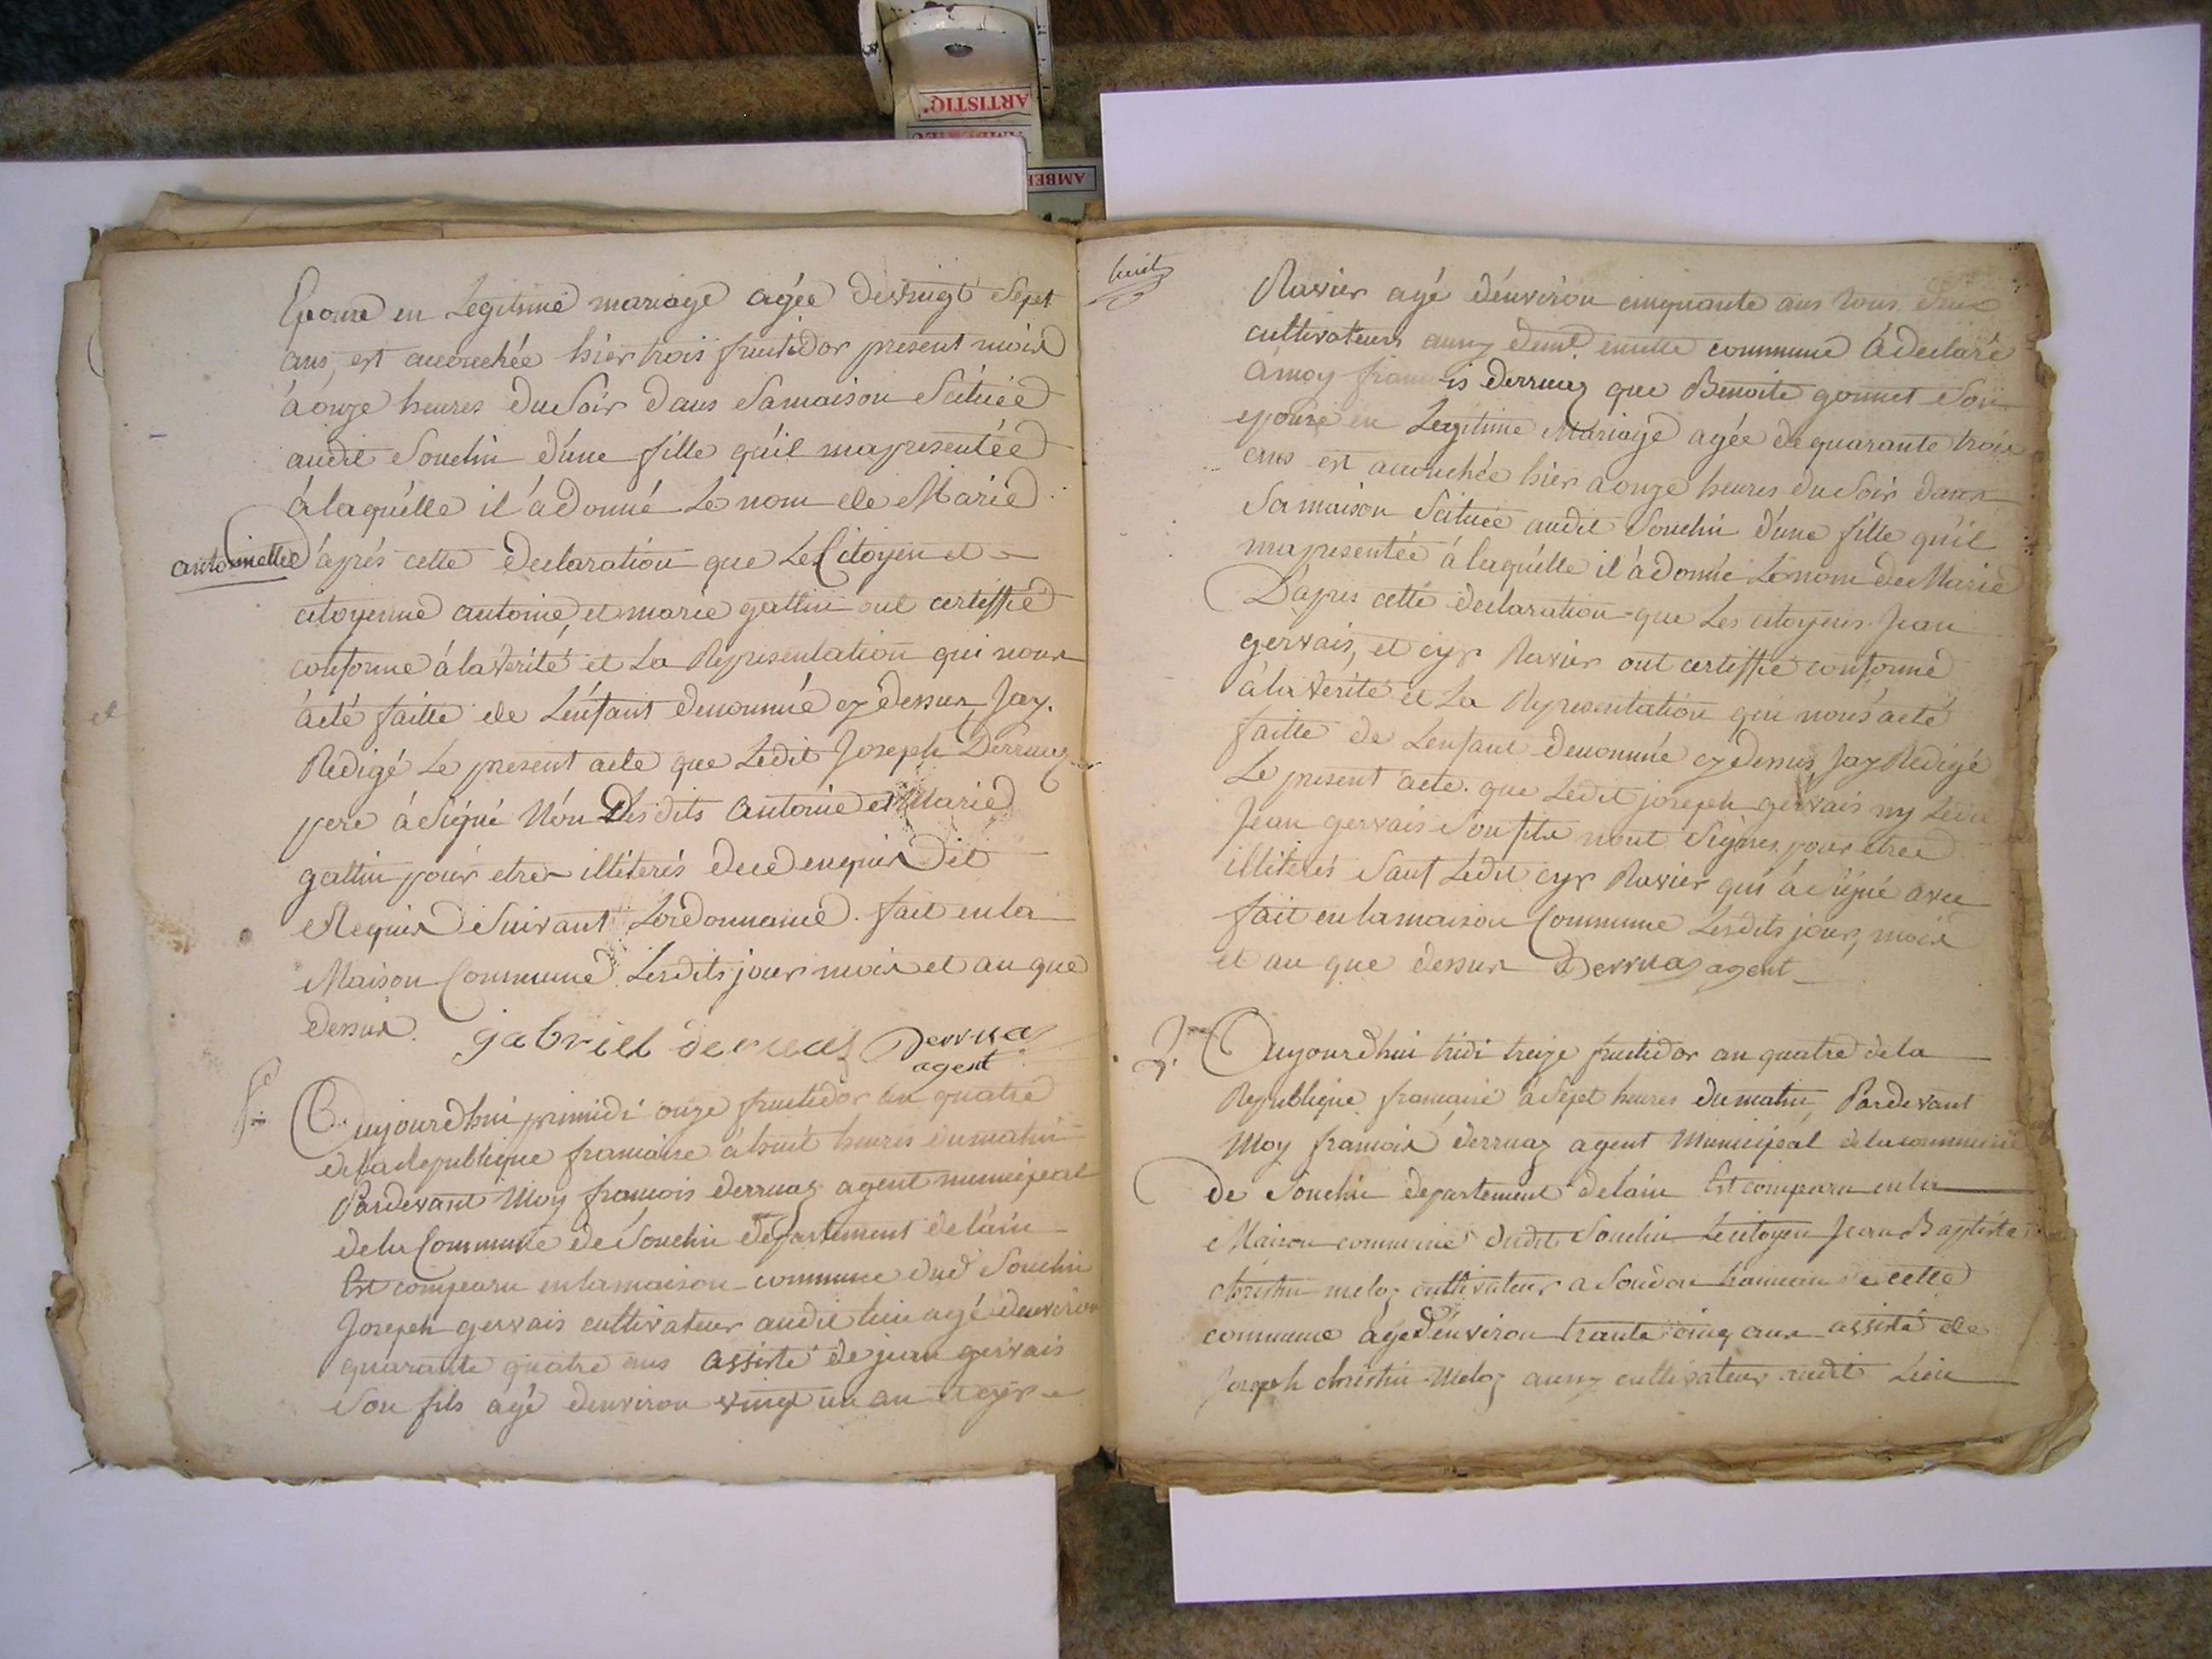 ARTISTIQ'
AMBER
Epouse en Legitime mariage agée de vingt Sept
ans, est accouchée hier trois fructidor present mois
à onze heures du Soir dans Samaison Scituée
audit Souclin d'une fille qu'il mapresentée
à laquélle il à donné Le nom de Marie
antoinette d'aprés cette declaration que Le Citoyen et
citoyenne antoine, et marie gallin ont certiffié
conforme à la verité et La Representation qui nous
àété faitte de L'enfant denommé cy dessus, Jay
Redigé Le present acte que Ledit Joseph Derruaz
pere à Signé Non Les dits Antoine et Marie
gallin pour etre illiterés de ce enquis Dit
Requis Suivant Lordonnance. fait en la
Maison Commune Lesdits jour mois et an que
dessus. gabriel derruaz Derruaz
agent
Aujourdhui primidi onze fructidor an quatre
de la Republique francaise à huit heures du matin
Pardevant Moy francois derruaz agent municipeal
de la Commune de Souclin departement de l'ain
Est comparu en la maison commune dud Souclin
Joseph gervais cultivateur audit lieu agé denviron
quarante quatre ans assisté de jean gervais
Son fils agé denviron vingt un an et cyr
huit
Ravier agé d'environ cinquante ans tous deux
cultivateurs aussy demt. en cette commune à declaré
à moy francois derruaz que Benoite gonnet Son
epouse en Legitime Mariage agée de quarante trois
ans est accouchée hier a onze heures du Soir dans
Sa maison Scituée audit Souclin d'une fille qu'il
mapresentée à laquélle il à donné Le nom de Marie
D'apres cette declaration que Les citoyens Jean
gervais, et cyr Ravier ont certiffié conforme
à la Verité et La Representation qui nous àeté
faitte de Lenfant denommé cy dessus, Jay Redigé
Le present acte que Ledit joseph gervais ny Ledit
Jean gervais Son fils nont Signes pour etre
illiterés Sauf Ledit cyr Ravier qui à Signé avec
fait en la maison Commune Lesdits jour, mois
et an que dessus Derruaz agent
Aujourdhui tridi treize fructidor an quatre de la
Republique francaise à Sept heures du matin, Pardevant
Moy francois derruaz agent Municipéal de la commune
de Souclin departement de lain Est comparu en la
Maison commune dudit Souclin Le citoyen Jean Baptiste
christin meloz cultivateur a Soudon hameau de cette
commune agé d'environ trante cinq ans assisté de
Joseph christin Meloz aussy cultivateur audit Lieu